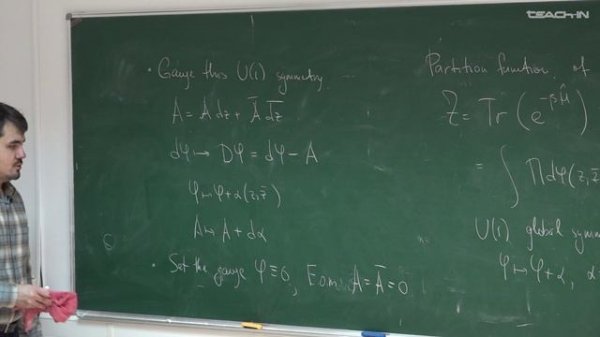 TEACHIN
• Gauge this U(1) symmetry
A = A dz + A̅ dz̅
dφ ↦ Dφ = dφ − A
φ ↦ φ + α(z, z̅)
A ↦ A + dα
• Set the gauge φ ≡ 0, E om A = A̅ = 0
Partition function of
Z = Tr ( e^{-βĤ} )
= ∫ ∏ dφ(z, z̅
U(1) global symm
φ ↦ φ + α, α =